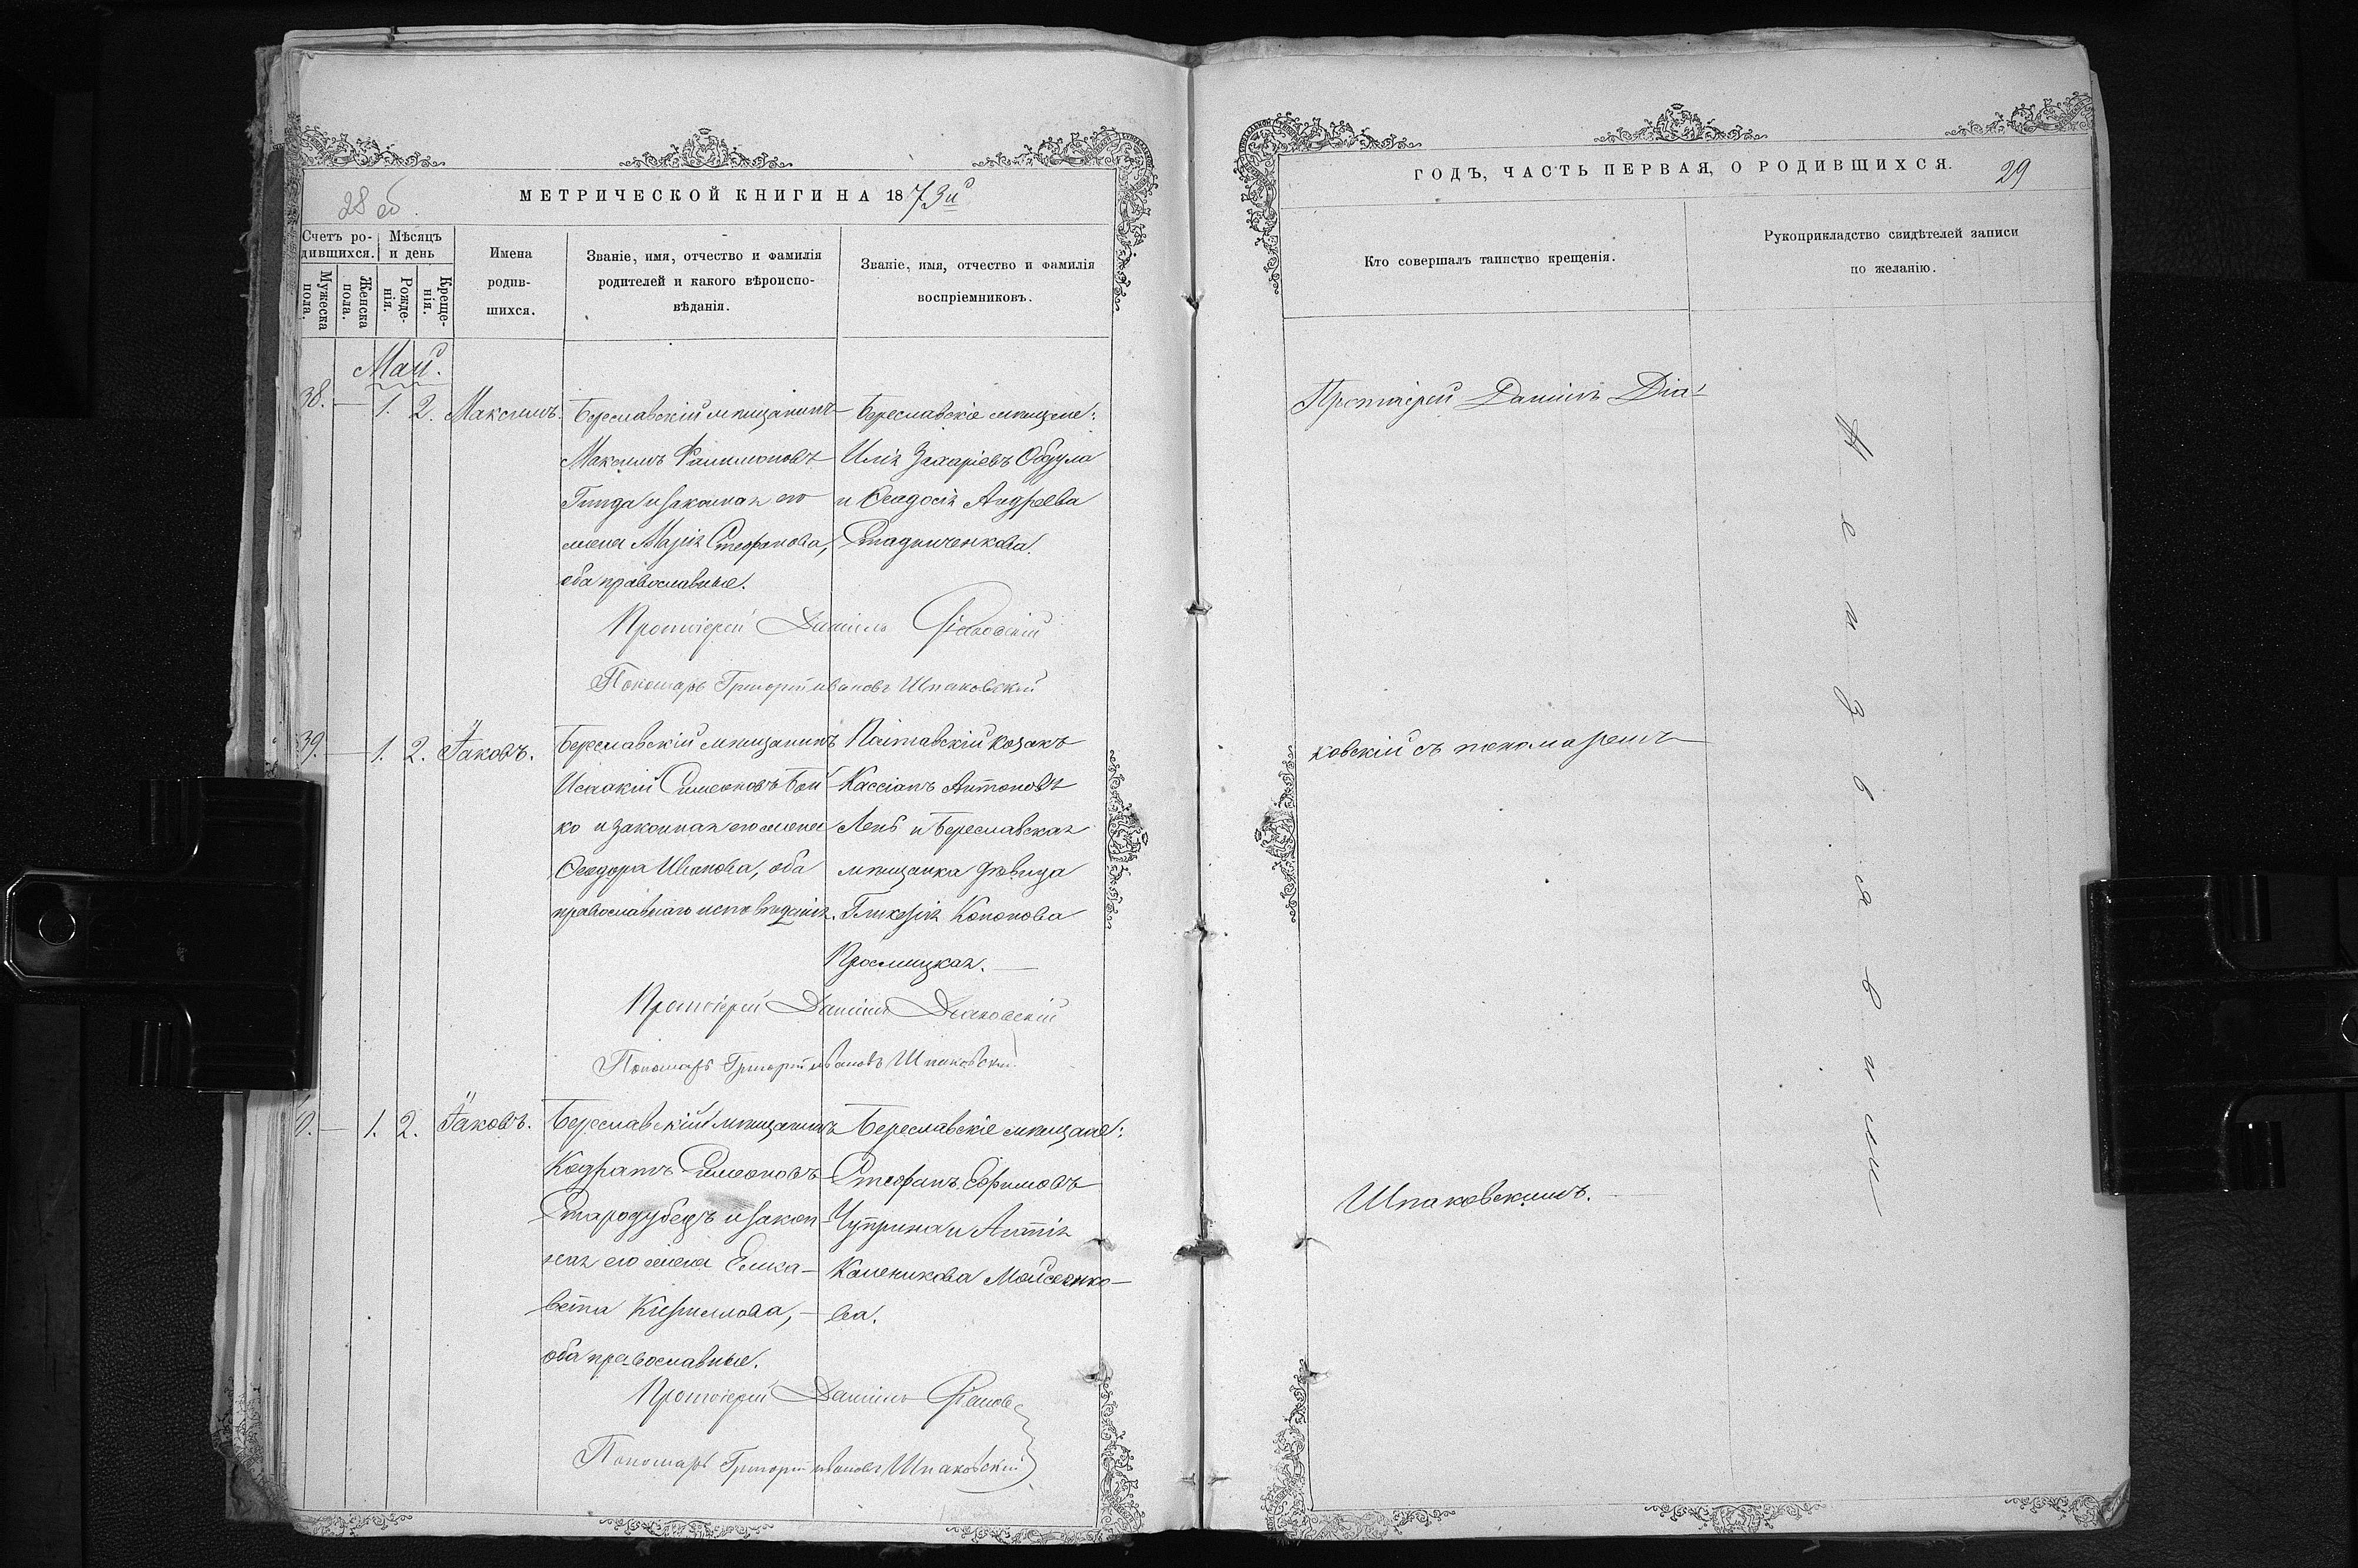 28 об.
МЕТРИЧЕСКОЙ КНИГИ НА 1873й
Счетъ ро-
дившихся.
Мѣсяцъ
и день
Мужеска
пола.
Женска
пола.
Рожде-
нія.
Креще-
нія.
Имена
родив-
шихся.
Званіе, имя, отчество и фамилія
родителей и какого вѣроиспо-
вѣданія.
Званіе, имя, отчество и фамилія
воспріемниковъ.
Май.
38. — 1. 2. Максимъ.
Береславскій мѣщанинъ
Максимъ Филимоновъ
и законная его
жена Марія Стефанова,
оба православные.
Береславскіе мѣщане:
Илія Захаріевъ
и Ѳеодосія Андреева
Стадниченкова.
Протоіерей Даніилъ Діаковскій
Пономарь Григорій Ивановъ Шпаковскій
39. — 1. 2. Іаковъ.
Береславскій мѣщанинъ
Исаакій Симеоновъ Бой-
ко и законная его жена
Ѳеодора Иванова, оба
православнаго исповѣданія.
Полтавскій козакъ
Кассіанъ Антоновъ
Лень и Береславская
мѣщанка дѣвица
Гликерія Кононова
Протоіерей Даніилъ Діаковскій
Пономарь Григорій Ивановъ Шпаковскій
0. — 1. 2. Іаковъ.
Береславскій мѣщанинъ
Кодратъ Симеоновъ
Стародубецъ и закон-
ная его жена Елиса-
вета Кириллова,
оба православные.
Береславскіе мѣщане:
Стефанъ Ефимовъ
Чуприна и
Каленикова Мойсеенко-
ва.
Протоіерей Даніилъ Діаков
Пономарь Григорій Ивановъ Шпаковскій
ГОДЪ, ЧАСТЬ ПЕРВАЯ, О РОДИВШИХСЯ.
29
Кто совершалъ таинство крещенія.
Рукоприкладство свидѣтелей записи
по желанію.
Протоіерей Даніилъ Діа-
ковскій съ пономаремъ
Шпаковскимъ.